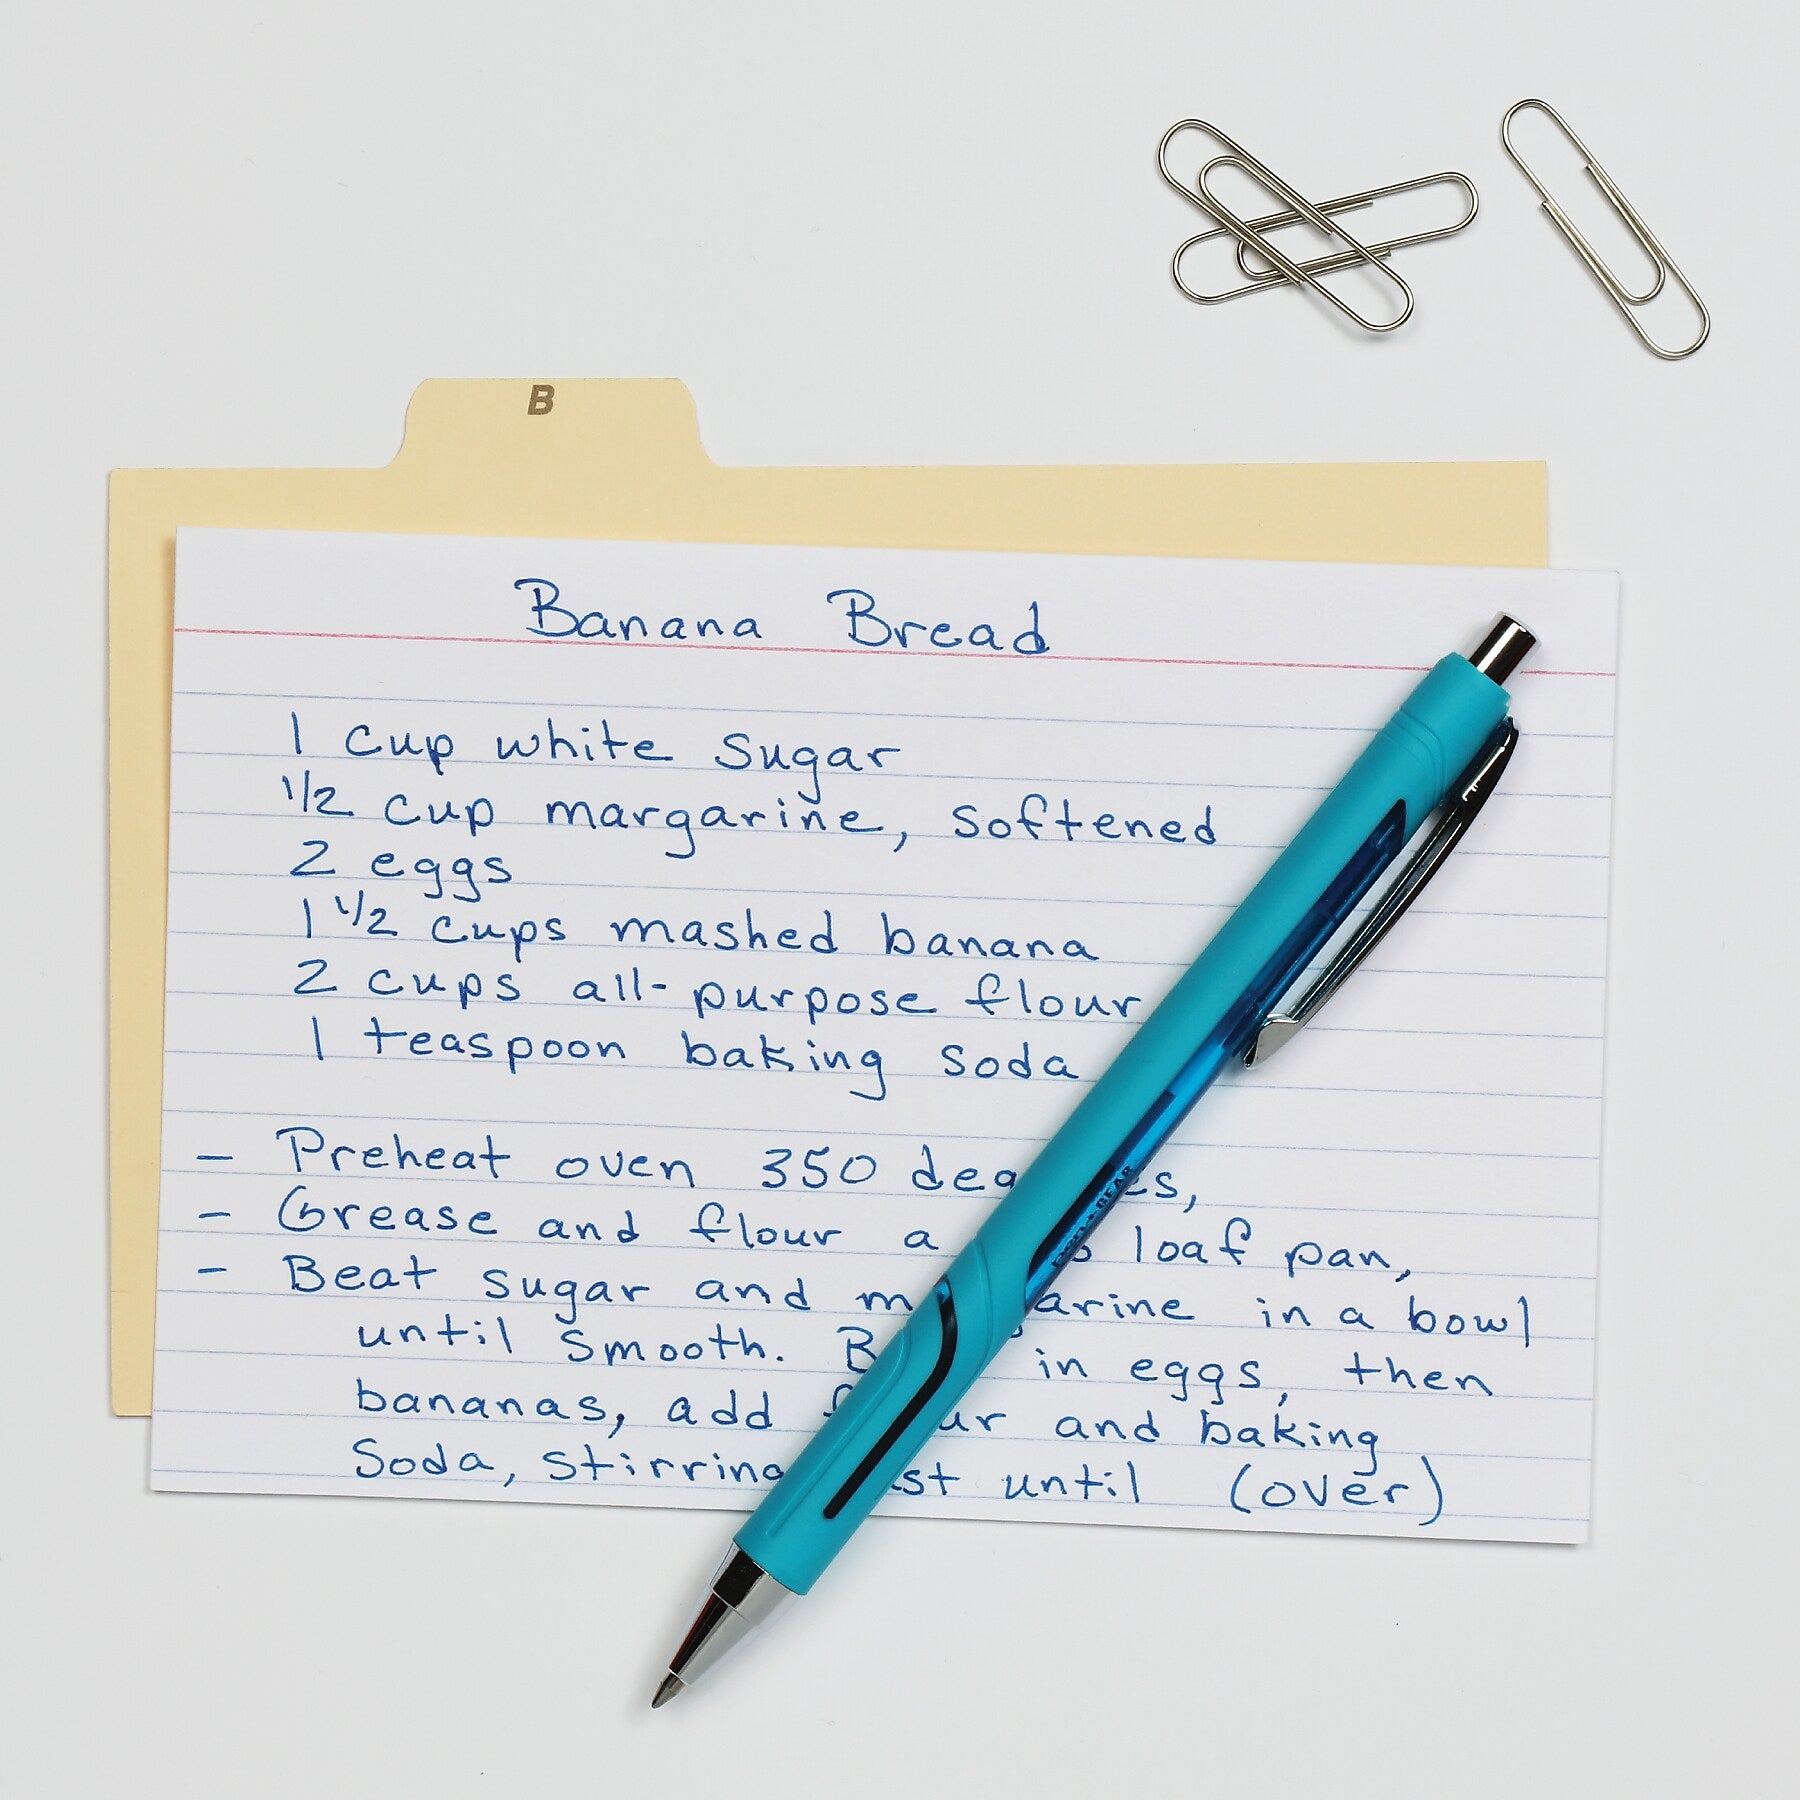 B
Banana Bread
1 cup white sugar
1/2 cup margarine, softened
2 eggs
1 1/2 cups mashed banana
2 cups all-purpose flour
1 teaspoon baking soda
- Preheat oven 350
- Grease and flour a loaf pan,
- Beat sugar and in a bowl
until smooth. in eggs, then
bananas, add and baking
soda, stirring until (over)